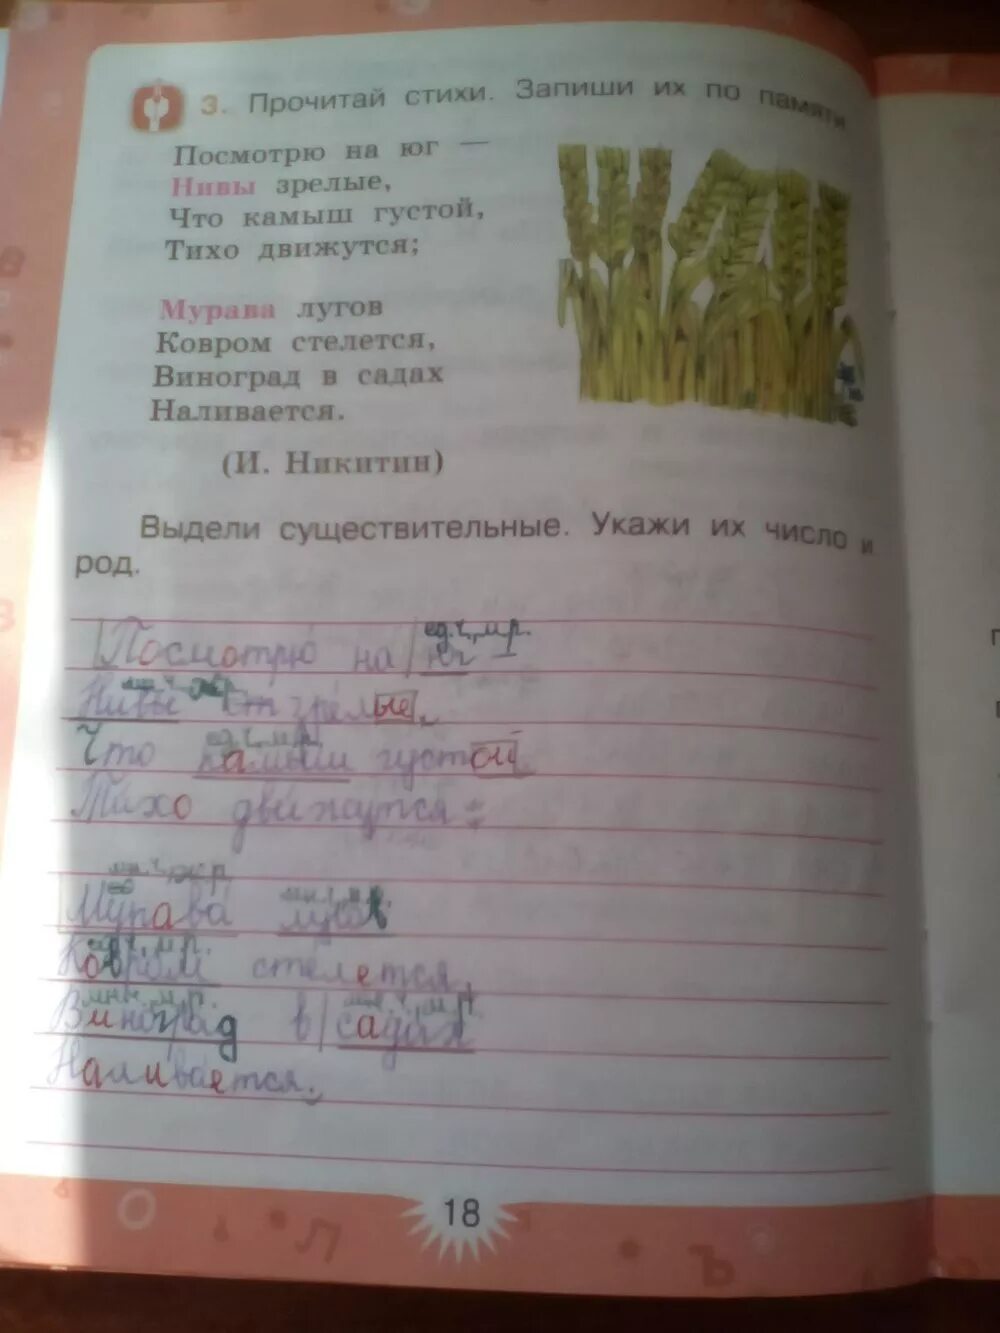 3. Прочитай стихи. Запиши их по памяти
Посмотрю на юг —
Нивы зрелые,
Что камыш густой,
Тихо движутся;
Мурава лугов
Ковром стелется,
Виноград в садах
Наливается.
(И. Никитин)
Выдели существительные. Укажи их число и
род.
ед.ч., м.р.
Посмотрю на юг —
Нивы зрелые,
ед.ч., м.р.
Что камыш густой,
Тихо движутся;
Мурава лугов
Ковром стелется,
Виноград в садах
Наливается.
18